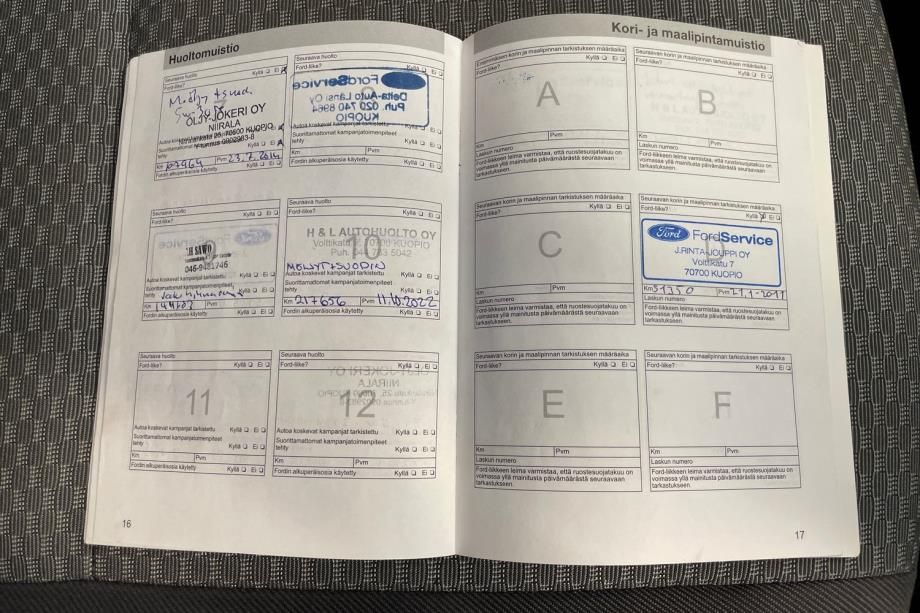 Huoltomuistio
Seuraava huolto
Ford-liike? Kyllä ❑ Ei ❑
7
ÖLJYJOKERI OY
NIIRALA
70600 KUOPIO
Autoa koskevat kampanjat tarkistettu
Suorittamattomat kampanjatoimenpiteet
tehty Kyllä ❑ Ei ❑
Km 107964 Pvm 23.7.2014
Fordin alkuperäisosia käytetty Kyllä ❑ Ei ❑
Seuraava huolto
Ford-liike? Kyllä ❑ Ei ❑
FordService
Delta-Auto Länsi Oy
Puh. 020 740 8964
KUOPIO
Autoa koskevat kampanjat tarkistettu
Suorittamattomat kampanjatoimenpiteet
tehty Kyllä ❑ Ei ❑
Km Pvm
Fordin alkuperäisosia käytetty Kyllä ❑ Ei ❑
Seuraava huolto
Ford-liike? Kyllä ❑ Ei ❑
FordService
Autoa koskevat kampanjat tarkistettu Kyllä ❑ Ei ❑
Suorittamattomat kampanjatoimenpiteet
tehty Kyllä ❑ Ei ❑
Km Pvm
Fordin alkuperäisosia käytetty Kyllä ❑ Ei ❑
Seuraava huolto
Ford-liike? Kyllä ❑ Ei ❑
10
H & L AUTOHUOLTO OY
70700 KUOPIO
5042
Autoa koskevat kampanjat tarkistettu Kyllä ❑ Ei ❑
Suorittamattomat kampanjatoimenpiteet
tehty Kyllä ❑ Ei ❑
Km 217656 Pvm 11.10.2022
Fordin alkuperäisosia käytetty Kyllä ❑ Ei ❑
Seuraava huolto
Ford-liike? Kyllä ❑ Ei ❑
11
Autoa koskevat kampanjat tarkistettu Kyllä ❑ Ei ❑
Suorittamattomat kampanjatoimenpiteet
tehty Kyllä ❑ Ei ❑
Km Pvm
Fordin alkuperäisosia käytetty Kyllä ❑ Ei ❑
Seuraava huolto
Ford-liike? Kyllä ❑ Ei ❑
12
Autoa koskevat kampanjat tarkistettu Kyllä ❑ Ei ❑
Suorittamattomat kampanjatoimenpiteet
tehty Kyllä ❑ Ei ❑
Km Pvm
Fordin alkuperäisosia käytetty Kyllä ❑ Ei ❑
16
Kori- ja maalipintamuistio
Ensimmäisen korin ja maalipinnan tarkistuksen määräaika
Ford-liike? Kyllä ❑ Ei ❑
A
Km Pvm
Laskun numero
Ford-liikkeen leima varmistaa, että ruostesuojatakuu on
voimassa yllä mainitusta päivämäärästä seuraavaan
tarkastukseen.
Seuraavan korin ja maalipinnan tarkistuksen määräaika
Ford-liike? Kyllä ❑ Ei ❑
B
Km Pvm
Laskun numero
Ford-liikkeen leima varmistaa, että ruostesuojatakuu on
voimassa yllä mainitusta päivämäärästä seuraavaan
tarkastukseen.
Seuraavan korin ja maalipinnan tarkistuksen määräaika
Ford-liike? Kyllä ❑ Ei ❑
C
Km Pvm
Laskun numero
Ford-liikkeen leima varmistaa, että ruostesuojatakuu on
voimassa yllä mainitusta päivämäärästä seuraavaan
tarkastukseen.
Seuraavan korin ja maalipinnan tarkistuksen määräaika
Ford-liike? Kyllä ❑ Ei ❑
D
Ford FordService
J.RINTA-JOUPPI OY
Volttikatu 7
70700 KUOPIO
Km 51350 Pvm 27.1-2011
Laskun numero
Ford-liikkeen leima varmistaa, että ruostesuojatakuu on
voimassa yllä mainitusta päivämäärästä seuraavaan
tarkastukseen.
Seuraavan korin ja maalipinnan tarkistuksen määräaika
Ford-liike? Kyllä ❑ Ei ❑
E
Km Pvm
Laskun numero
Ford-liikkeen leima varmistaa, että ruostesuojatakuu on
voimassa yllä mainitusta päivämäärästä seuraavaan
tarkastukseen.
Seuraavan korin ja maalipinnan tarkistuksen määräaika
Ford-liike? Kyllä ❑ Ei ❑
F
Km Pvm
Laskun numero
Ford-liikkeen leima varmistaa, että ruostesuojatakuu on
voimassa yllä mainitusta päivämäärästä seuraavaan
tarkastukseen.
17